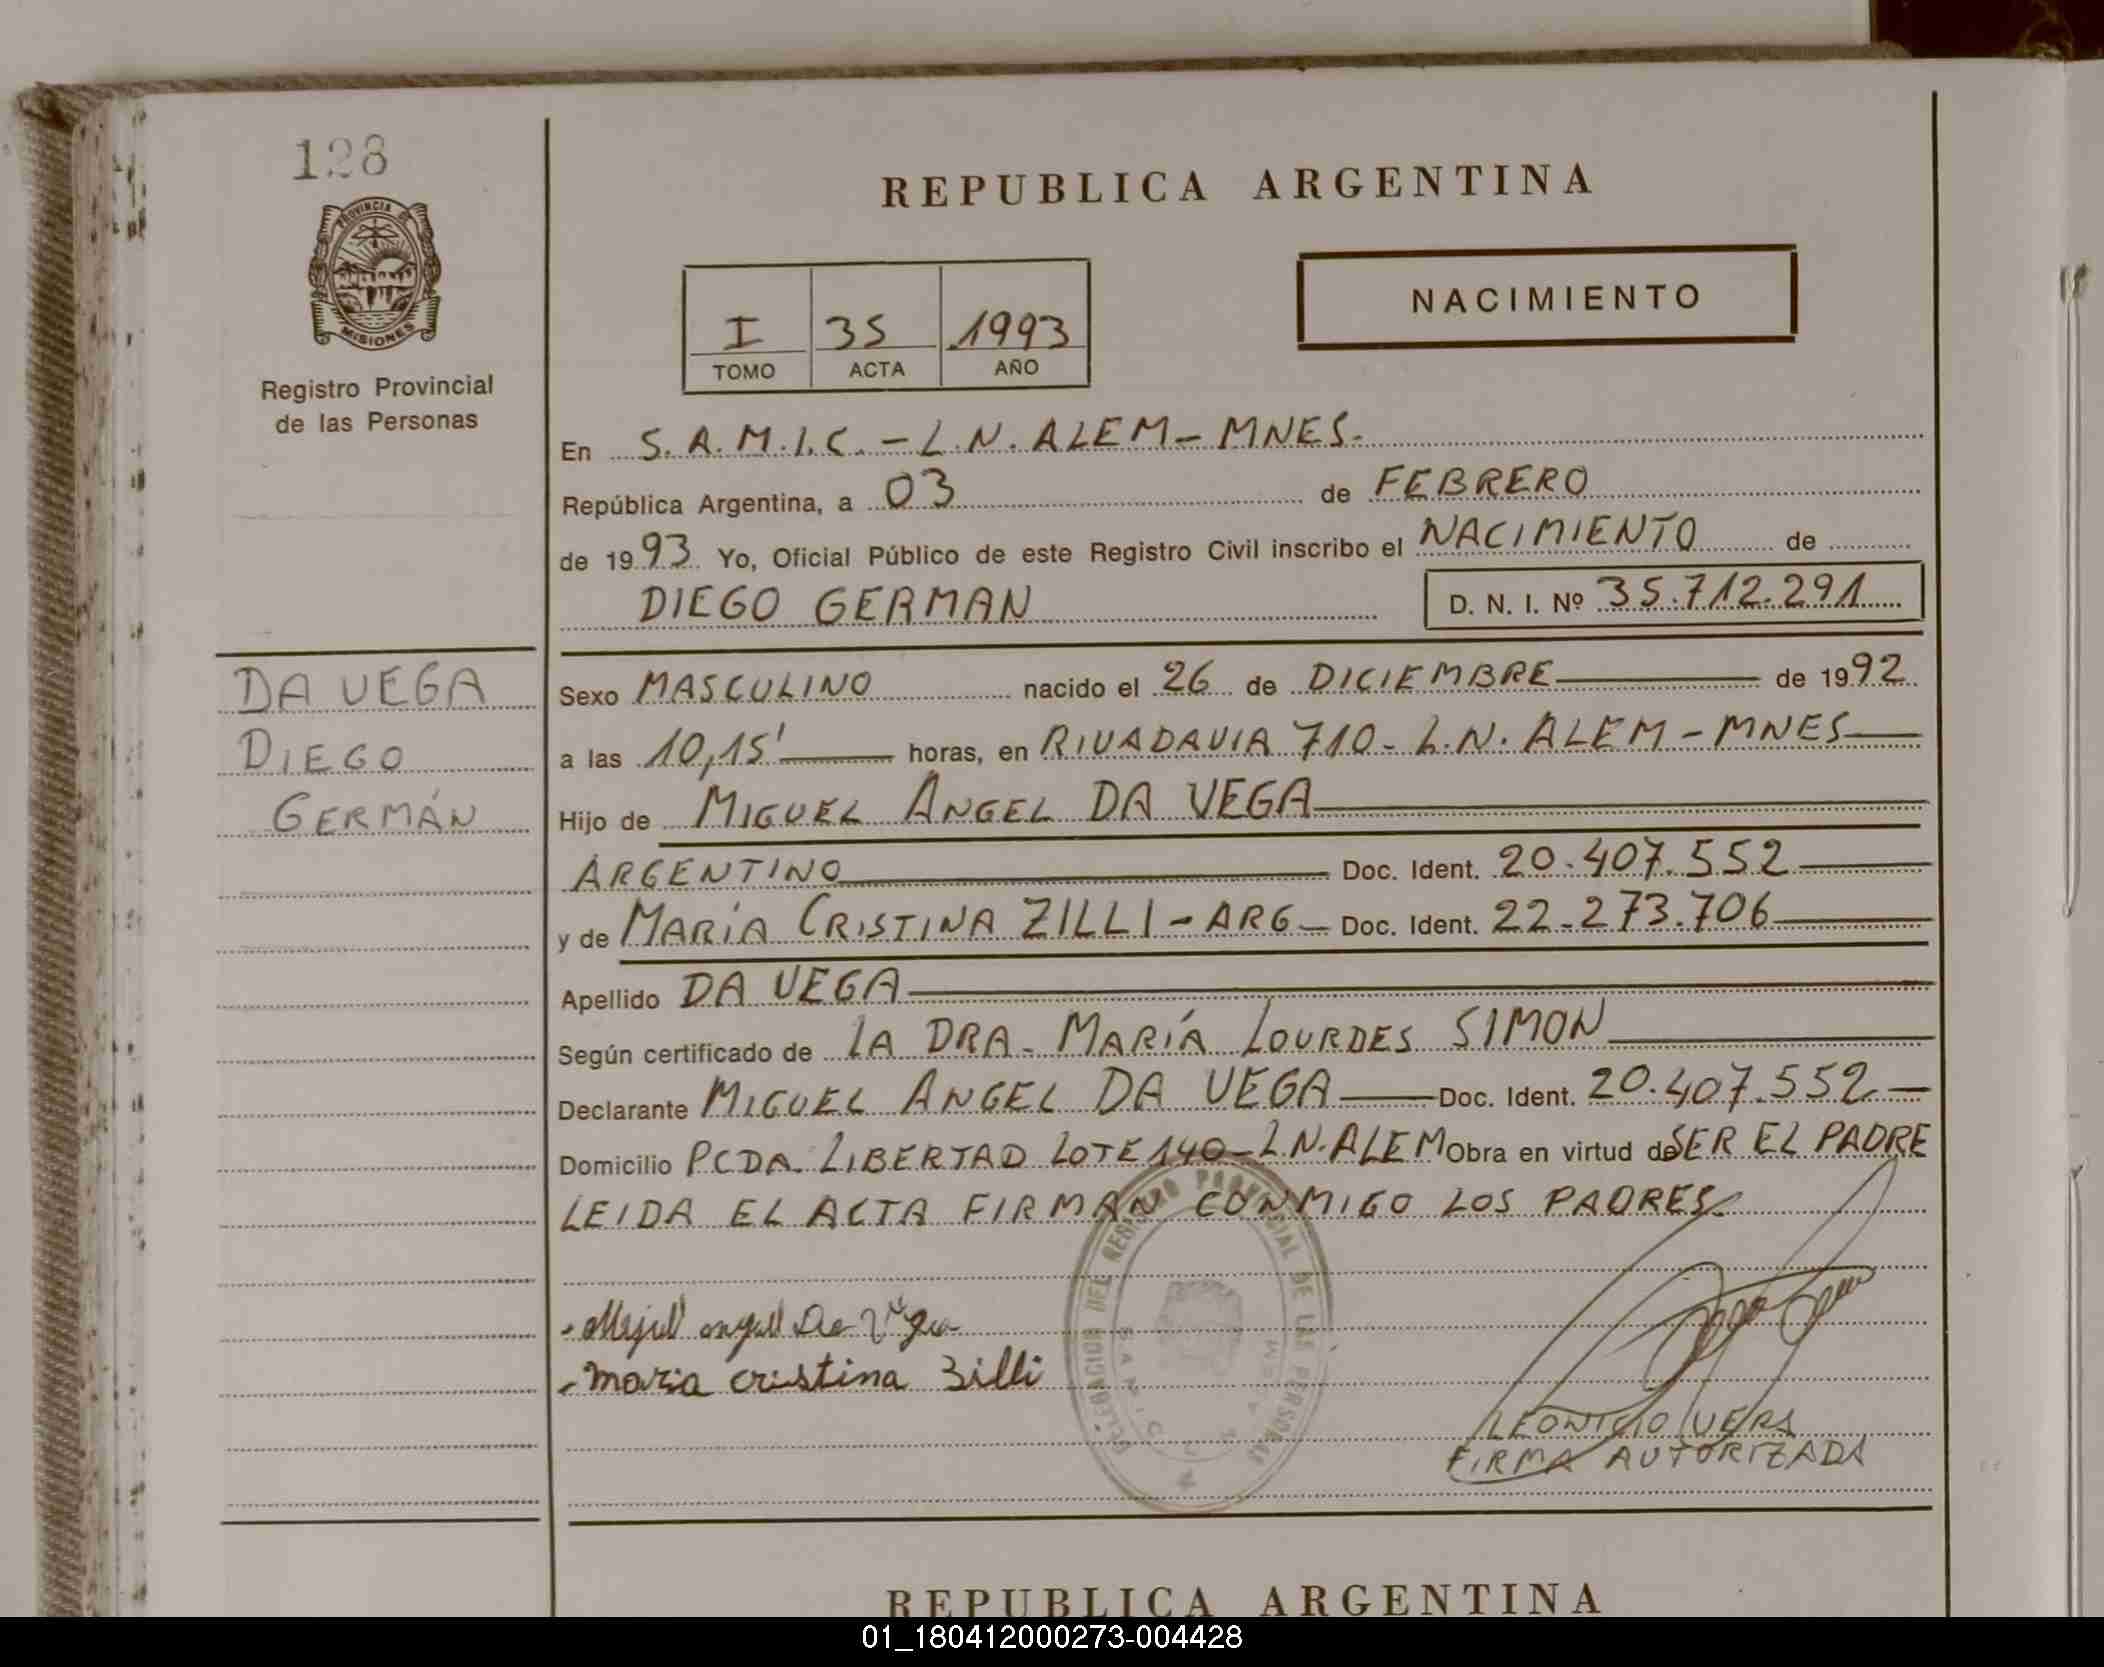 128
PROVINCIA DE
MISIONES
Registro Provincial
de las Personas
REPUBLICA ARGENTINA
I 35 1993
TOMO ACTA AÑO
NACIMIENTO
En S.A.M.I.C. - L.N. ALEM - MNES.
República Argentina, a 03 de FEBRERO
de 1993 Yo, Oficial Público de este Registro Civil inscribo el NACIMIENTO de
DIEGO GERMAN D. N. I. Nº 35.712.291
DA VEGA
DIEGO
GERMÁN
Sexo MASCULINO nacido el 26 de DICIEMBRE de 1992
a las 10,15' horas, en RIVADAVIA 710 - L.N. ALEM - MNES
Hijo de MIGUEL ANGEL DA VEGA
ARGENTINO Doc. Ident. 20.407.552
y de MARÍA CRISTINA ZILLI - ARG Doc. Ident. 22.273.706
Apellido DA VEGA
Según certificado de LA DRA. MARÍA LOURDES SIMON
Declarante MIGUEL ANGEL DA VEGA Doc. Ident. 20.407.552
Domicilio PCDA. LIBERTAD LOTE 140 - L.N. ALEM Obra en virtud de SER EL PADRE
LEIDA EL ACTA FIRMAN CONMIGO LOS PADRES.
DELEGACION DEL REGISTRO PROVINCIAL DE LAS PERSONAS
- Miguel angel Da Vega
- maria cristina Zilli
LEONICIO VERA
FIRMA AUTORIZADA
REPUBLICA ARGENTINA
01_180412000273-004428